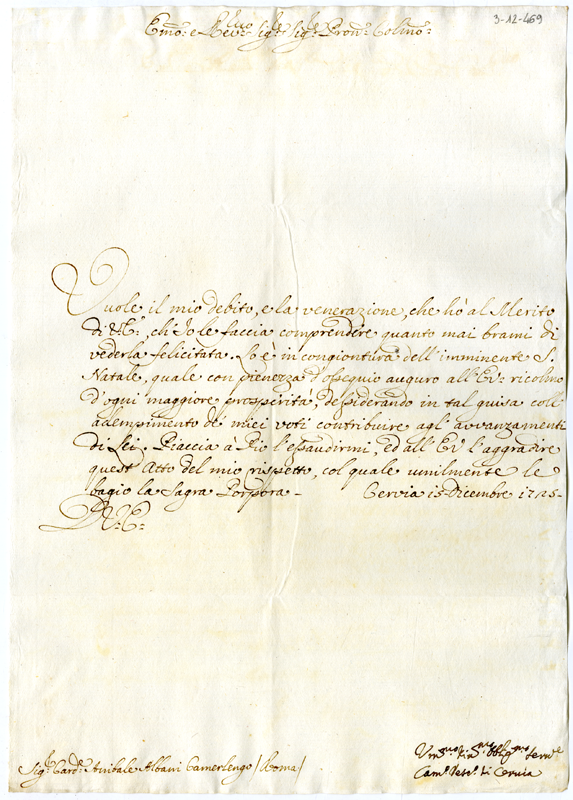 3-12-469
Emo: e Revmo: Sigre Sigre Prone: Colmo:
Vuole il mio debito, e la venerazione, che hò al Merito
di VE:, ch'Io le faccia comprendere quanto mai brami di
vederla felicitata. Io è in congiontura dell'imminente S.
Natale, quale con pienezza d'ossequio auguro all'EV: ricolmo
d'ogni maggiore prosperità, dessiderando in tal guisa coll'
adempimento de miei voti contribuire agl'avvanzamenti
di Lei. Piaccia à Dio l'essaudirmi, ed all'EV l'aggradire
quest'Atto del mio rispetto, col quale umilmente le
bagio la Sagra Porpora - Cervia 15 Dicembre 1725-
D. V. E:
Sigr Cardl: Anibale Albani Camerlengo /Roma/
Vmo Obligmo Serve
Camo Vesco di Cervia